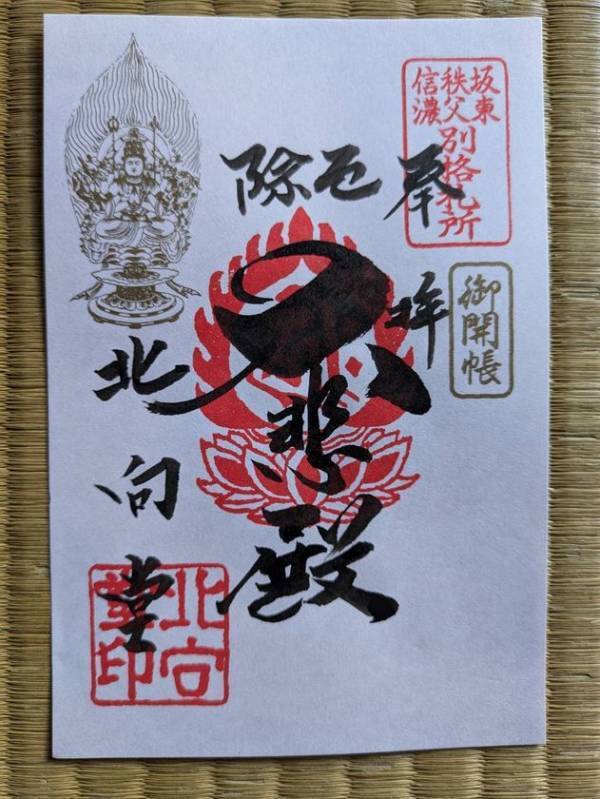 坂東
秩父
信濃
別格札所
奉拝
御開帳
厄除
大悲殿
北向堂
北向堂印